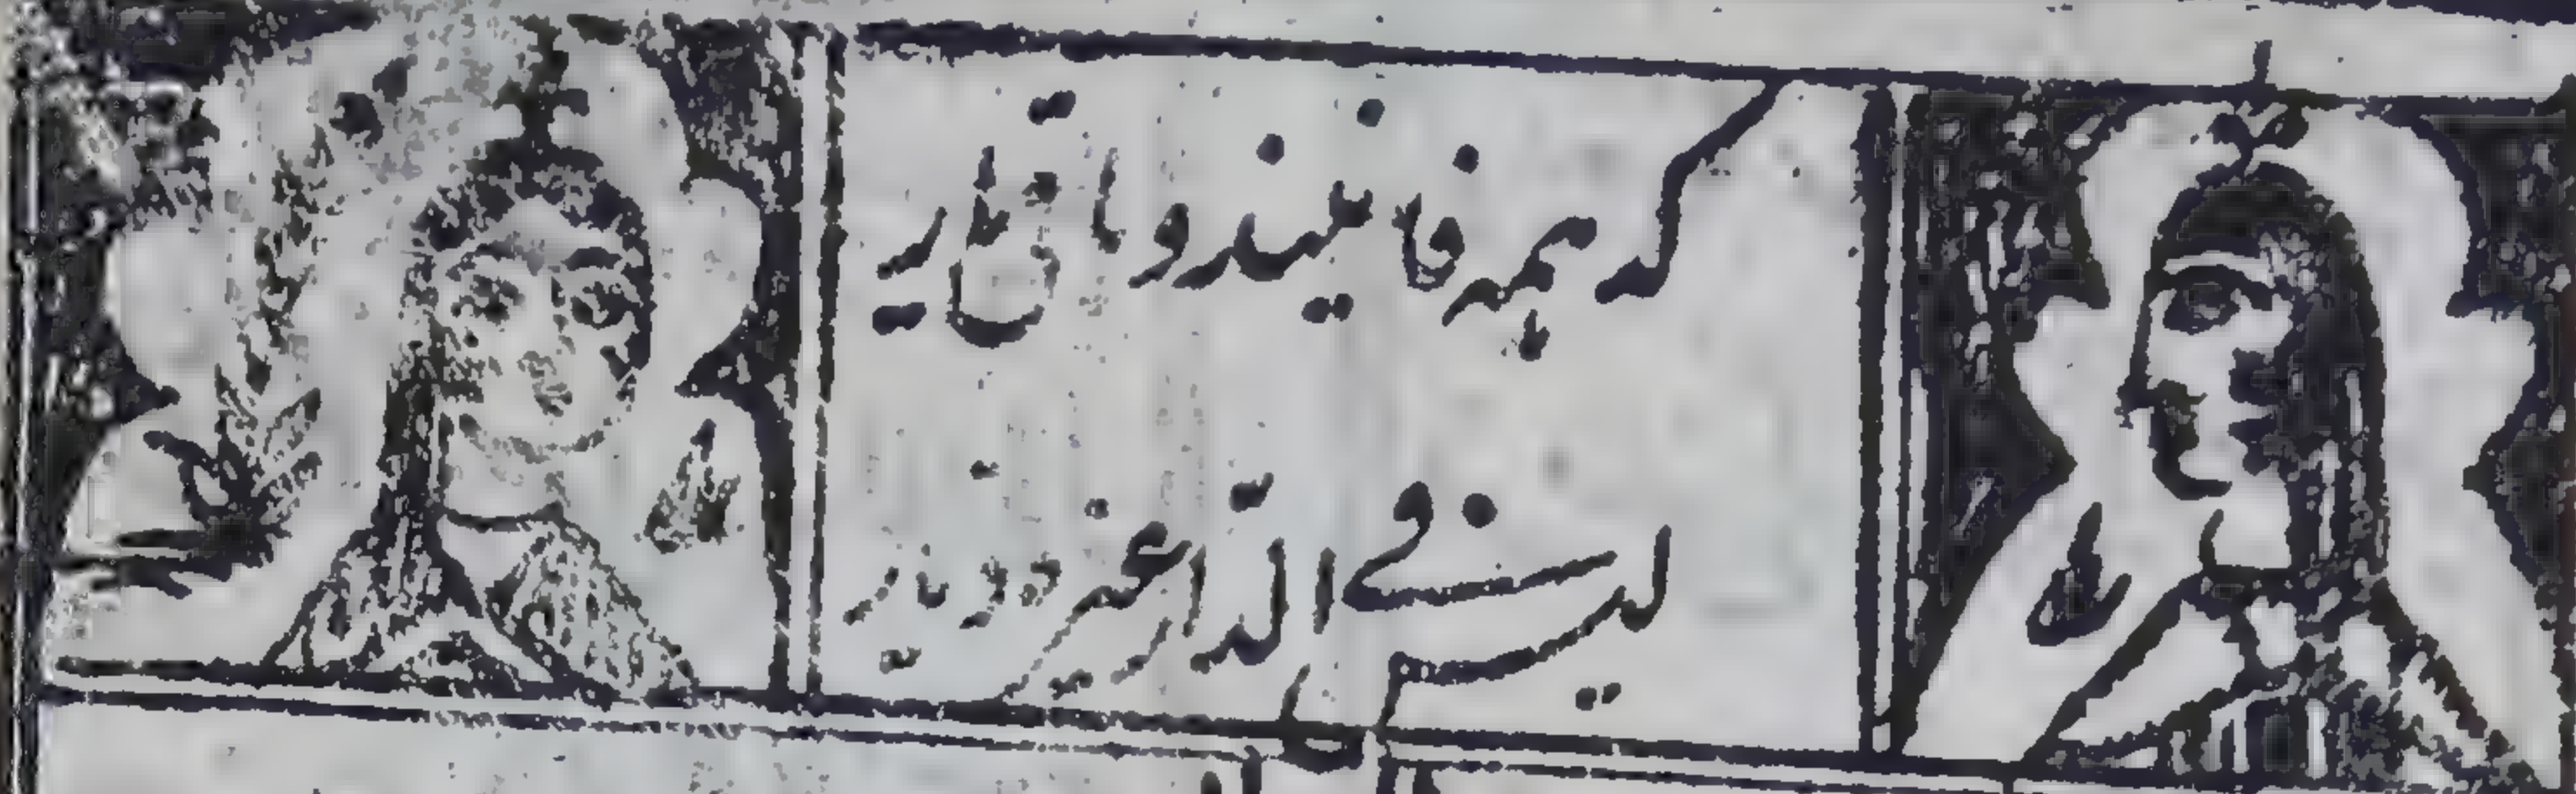 که همه فانیند و باقی یار
لیس فی الدار غیره دیار